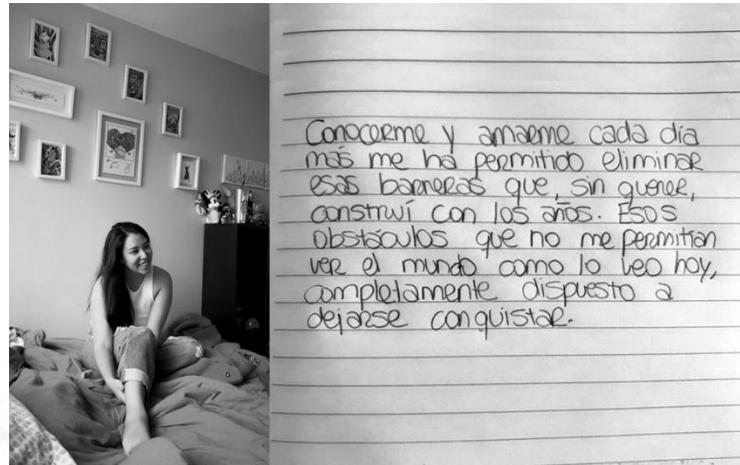 Conocerme y amarme cada día
más me ha permitido eliminar
esas barreras que, sin querer,
construí con los años. Esos
obstáculos que no me permitían
ver el mundo como lo veo hoy,
completamente dispuesto a
dejarse conquistar.